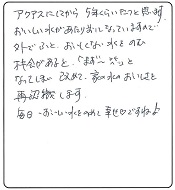 アクアスにしてから 5年くらいたつと思います。
おいしい水があたりまえになっていますので
外でふと、おいしくない水をのむ
機会があると、「まず〜」と
なってしまい 改めて、家の水のおいしさを
再認識します。
毎日、おいしい水をのめて 幸せですね♪